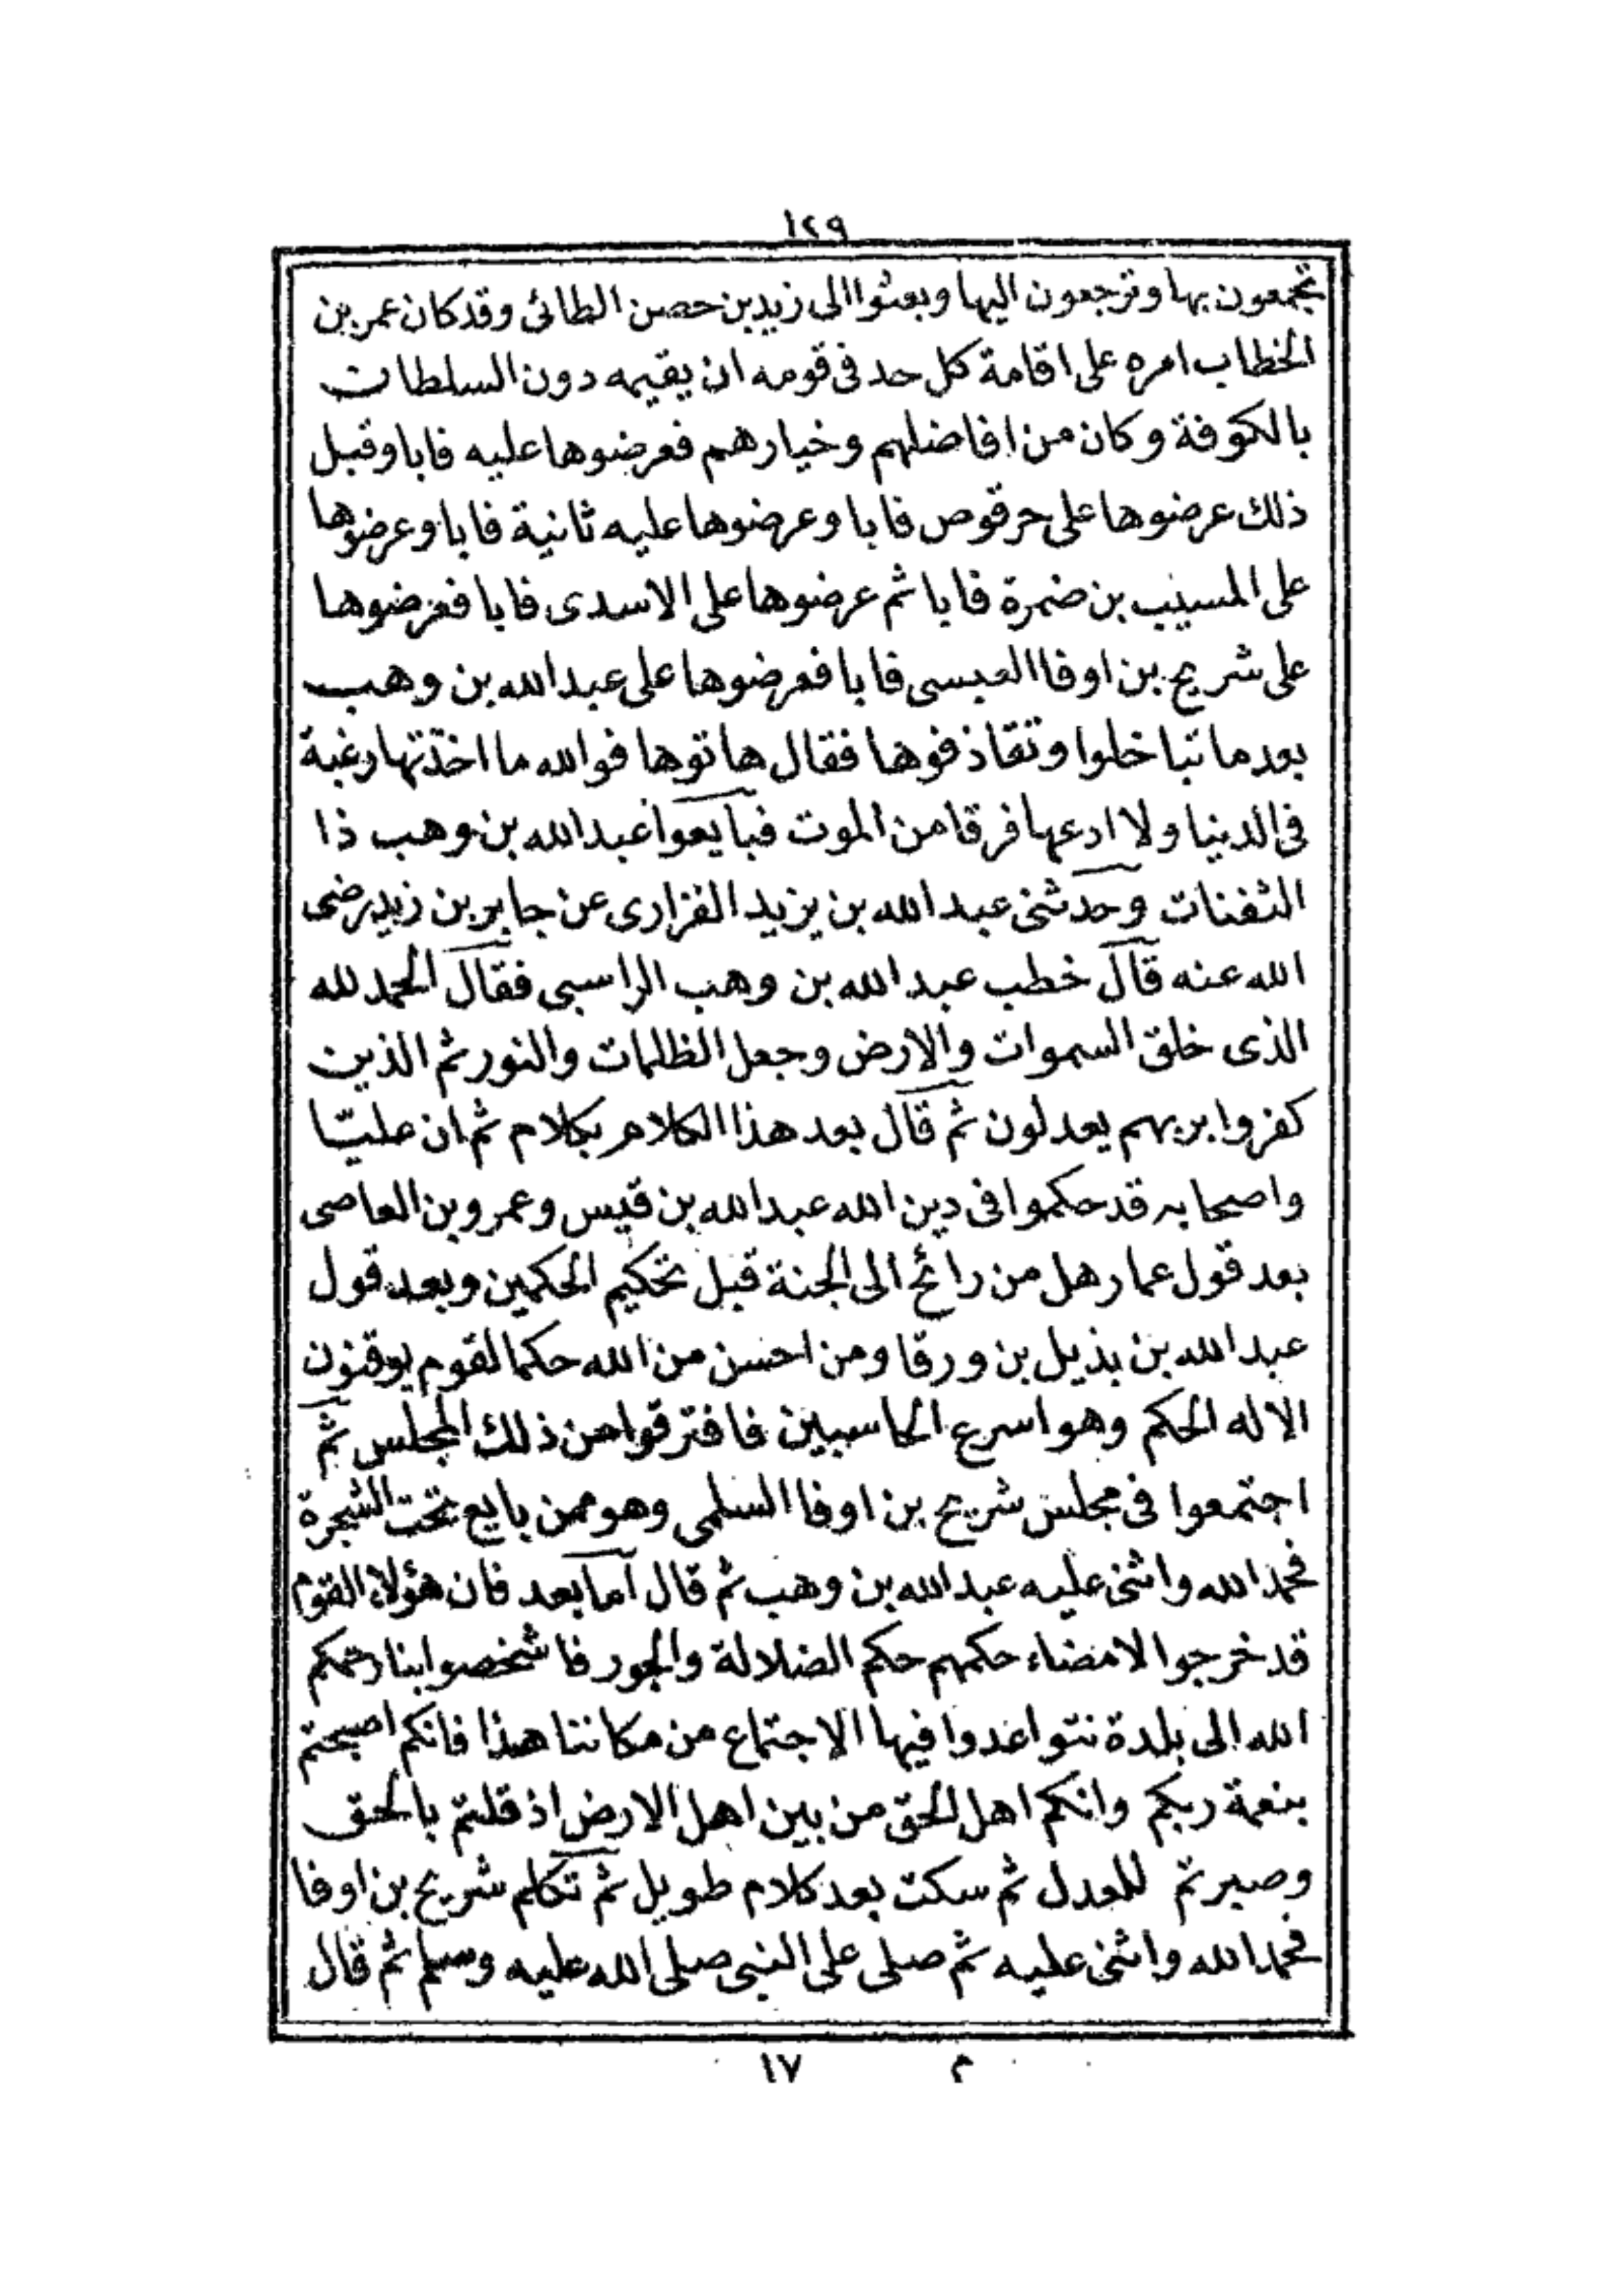 ١٢٩
تجمعون بها وترجعون اليها وبعثوا الى زيد بن حصن الطائى وقد كان عمر بن
الخطاب امره على اقامة كل حد فى قومه ان يقيمه دون السلطان
بالكوفة وكان من افاضلهم وخيارهم فعرضوها عليه فابا وقبل
ذلك عرضوها على حرقوص فابا وعرضوها عليه ثانية فابا وعرضوها
على المسيب بن ضمرة فابا ثم عرضوها على الاسدى فابا فعرضوها
على شريح بن اوفا العبسى فابا فعرضوها على عبد الله بن وهب
بعد ما تباخلوا وتقاذفوها فقال هاتوها فوالله ما اخذتها رغبة
فى الدنيا ولا ادعها فرقا من الموت فبايعوا عبد الله بن وهب ذا
الثفنات وحدثنى عبد الله بن يزيد الفزارى عن جابر بن زيد رضى
الله عنه قال خطب عبد الله بن وهب الراسبى فقال الحمد لله
الذى خلق السموات والارض وجعل الظلمات والنور ثم الذين
كفروا بربهم يعدلون ثم قال بعد هذا الكلام بكلام ثم ان عليّا
واصحابه قد حكموا فى دين الله عبد الله بن قيس وعمرو بن العاصى
بعد قول عمار هل من رائح الى الجنة قبل تحكيم الحكمين وبعد قول
عبد الله بن بذيل بن ورقا ومن احسن من الله حكما لقوم يوقنون
الا له الحكم وهو اسرع الحاسبين فافترقوا من ذلك المجلس ثم
اجتمعوا فى مجلس شريح بن اوفا السلمى وهو ممن بايع تحت الشجرة
فحمد الله واثنى عليه عبد الله بن وهب ثم قال اما بعد فان هؤلاء القوم
قد خرجوا لامضاء حكمهم حكم الضلالة والجور فاشخصوا بنا رحمكم
الله الى بلدة نتواعدوا فيها الاجتماع من مكاننا هذا فانكم اصبحتم
بنعمة ربكم وانكم اهل الحق من بين اهل الارض اذ قلتم بالحق
وصبرتم للعدل ثم سكت بعد كلام طويل ثم تكلم شريح بن اوفا
فحمد الله واثنى عليه ثم صلى على النبى صلى الله عليه وسلم ثم قال
م ١٧